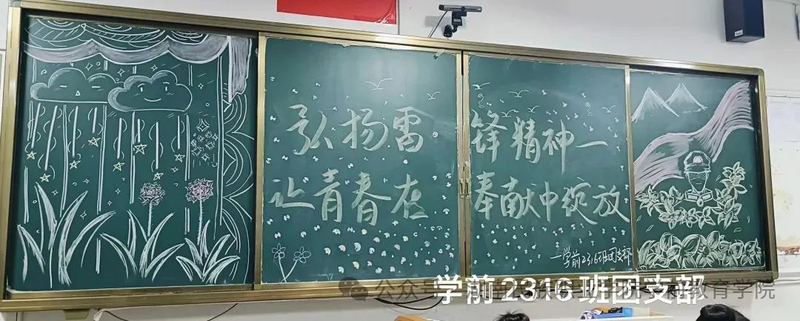 弘扬雷锋精神一
让青春在奉献中绽放
一学前2316班团支部
学前2316班团支部
公众号
教育学院